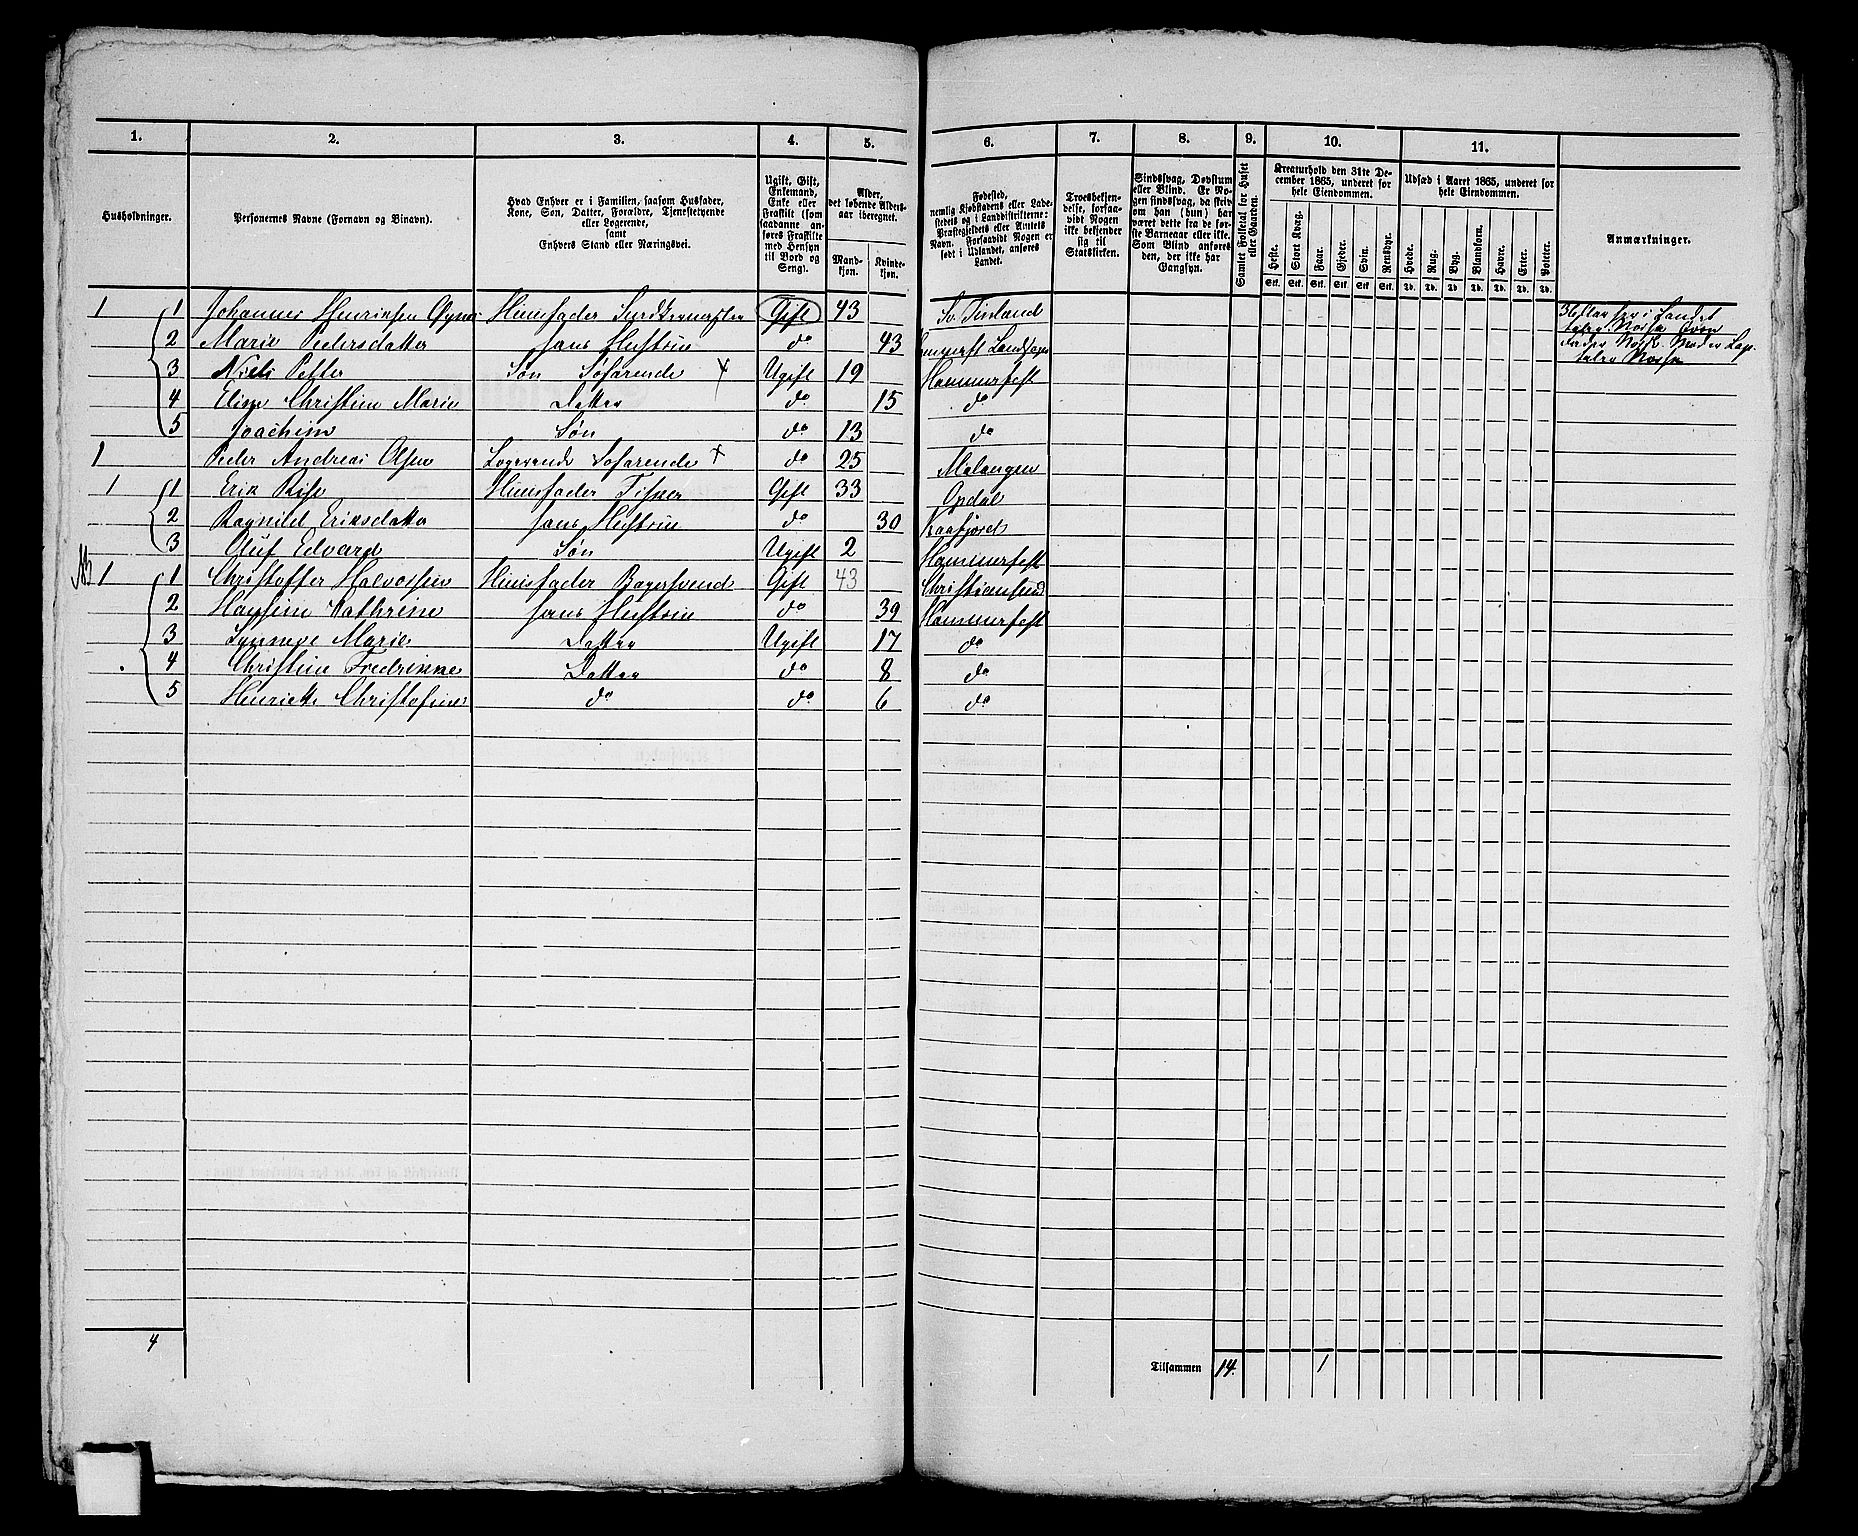 1. 2. 3. 4. 5. 6. 7. 8. 9. 10. 11.
Husholdninger.
Personernes Navne (Fornavn og Binavn).
Hvad Enhver er i Familien, saasom Husfader, Kone, Søn, Datter, Forældre, Tjenestetyende eller Logerende, samt Enhvers Stand eller Næringsvei.
Ugift, Gift, Enkemand, Enke eller Fraskilt (som saadanne anføres Fraskilte med Hensyn til Bord og Seng).
Alder, det løbende Alders-aar iberegnet.
Mand-kjøn. Kvinde-kjøn.
Fødested, nemlig Kjøbstadens eller Ladestedets og i Landdistrikterne: Præstegjeldets eller Amtets Navn. Forsaavidt Nogen er født i Udlandet, anføres Landet.
Troesbekjendelse, forsaavidt Nogen ikke bekjender sig til Statskirken.
Sindssvag, Døvstum eller Blind. Er Nogen sindssvag, da skrives om han (hun) har været dette fra de første Barneaar eller ikke. Som Blind anføres den, der ikke har Gangsyn.
Samlet Folketal for Huset eller Gaarden.
Kreaturhold den 31te December 1865, underet for hele Eiendommen.
Heste. Stort Kvæg. Faar. Gjeder. Svin. Rensdyr.
Stk. Stk. Stk. Stk. Stk. Stk.
Udsæd i Aaret 1865, underet for hele Eiendommen.
Hvede. Rug. Byg. Blandkorn. Havre. Erter. Poteter.
Td. Td. Td. Td. Td. Td. Td.
Anmærkninger.
1 1 Johannes Henriksen Husfader Gift 43 Finland
2 Marie Pedersdatter hans Hustrue do 43
3 Niels Petter Søn Søfarende Ugift 19 Hammerfest
4 Elise Christine Marie Datter do 15 do
5 Joachim Søn do 13 do
1 Peder Andreas Olsen Logerende Søfarende do 25 Malangen
1 1 Erik Rise Husfader Fisker Gift 33 Opdal
2 Ragnild Eriksdatter hans Hustrue do 30 Kaafjord
3 Oluf Edvard Søn Ugift 2 Hammerfest
1 1 Christoffer Halvorsen Husfader Bagersvend Gift 43 Christiansund
2 Hansine Kathrine hans Hustrue do 39 Hammerfest
3 Marie Datter Ugift 17 do
4 Christine Fredrikke Datter do 8 do
5 Henriette Christofine do do 6 do
4
Tilsammen 14. 1